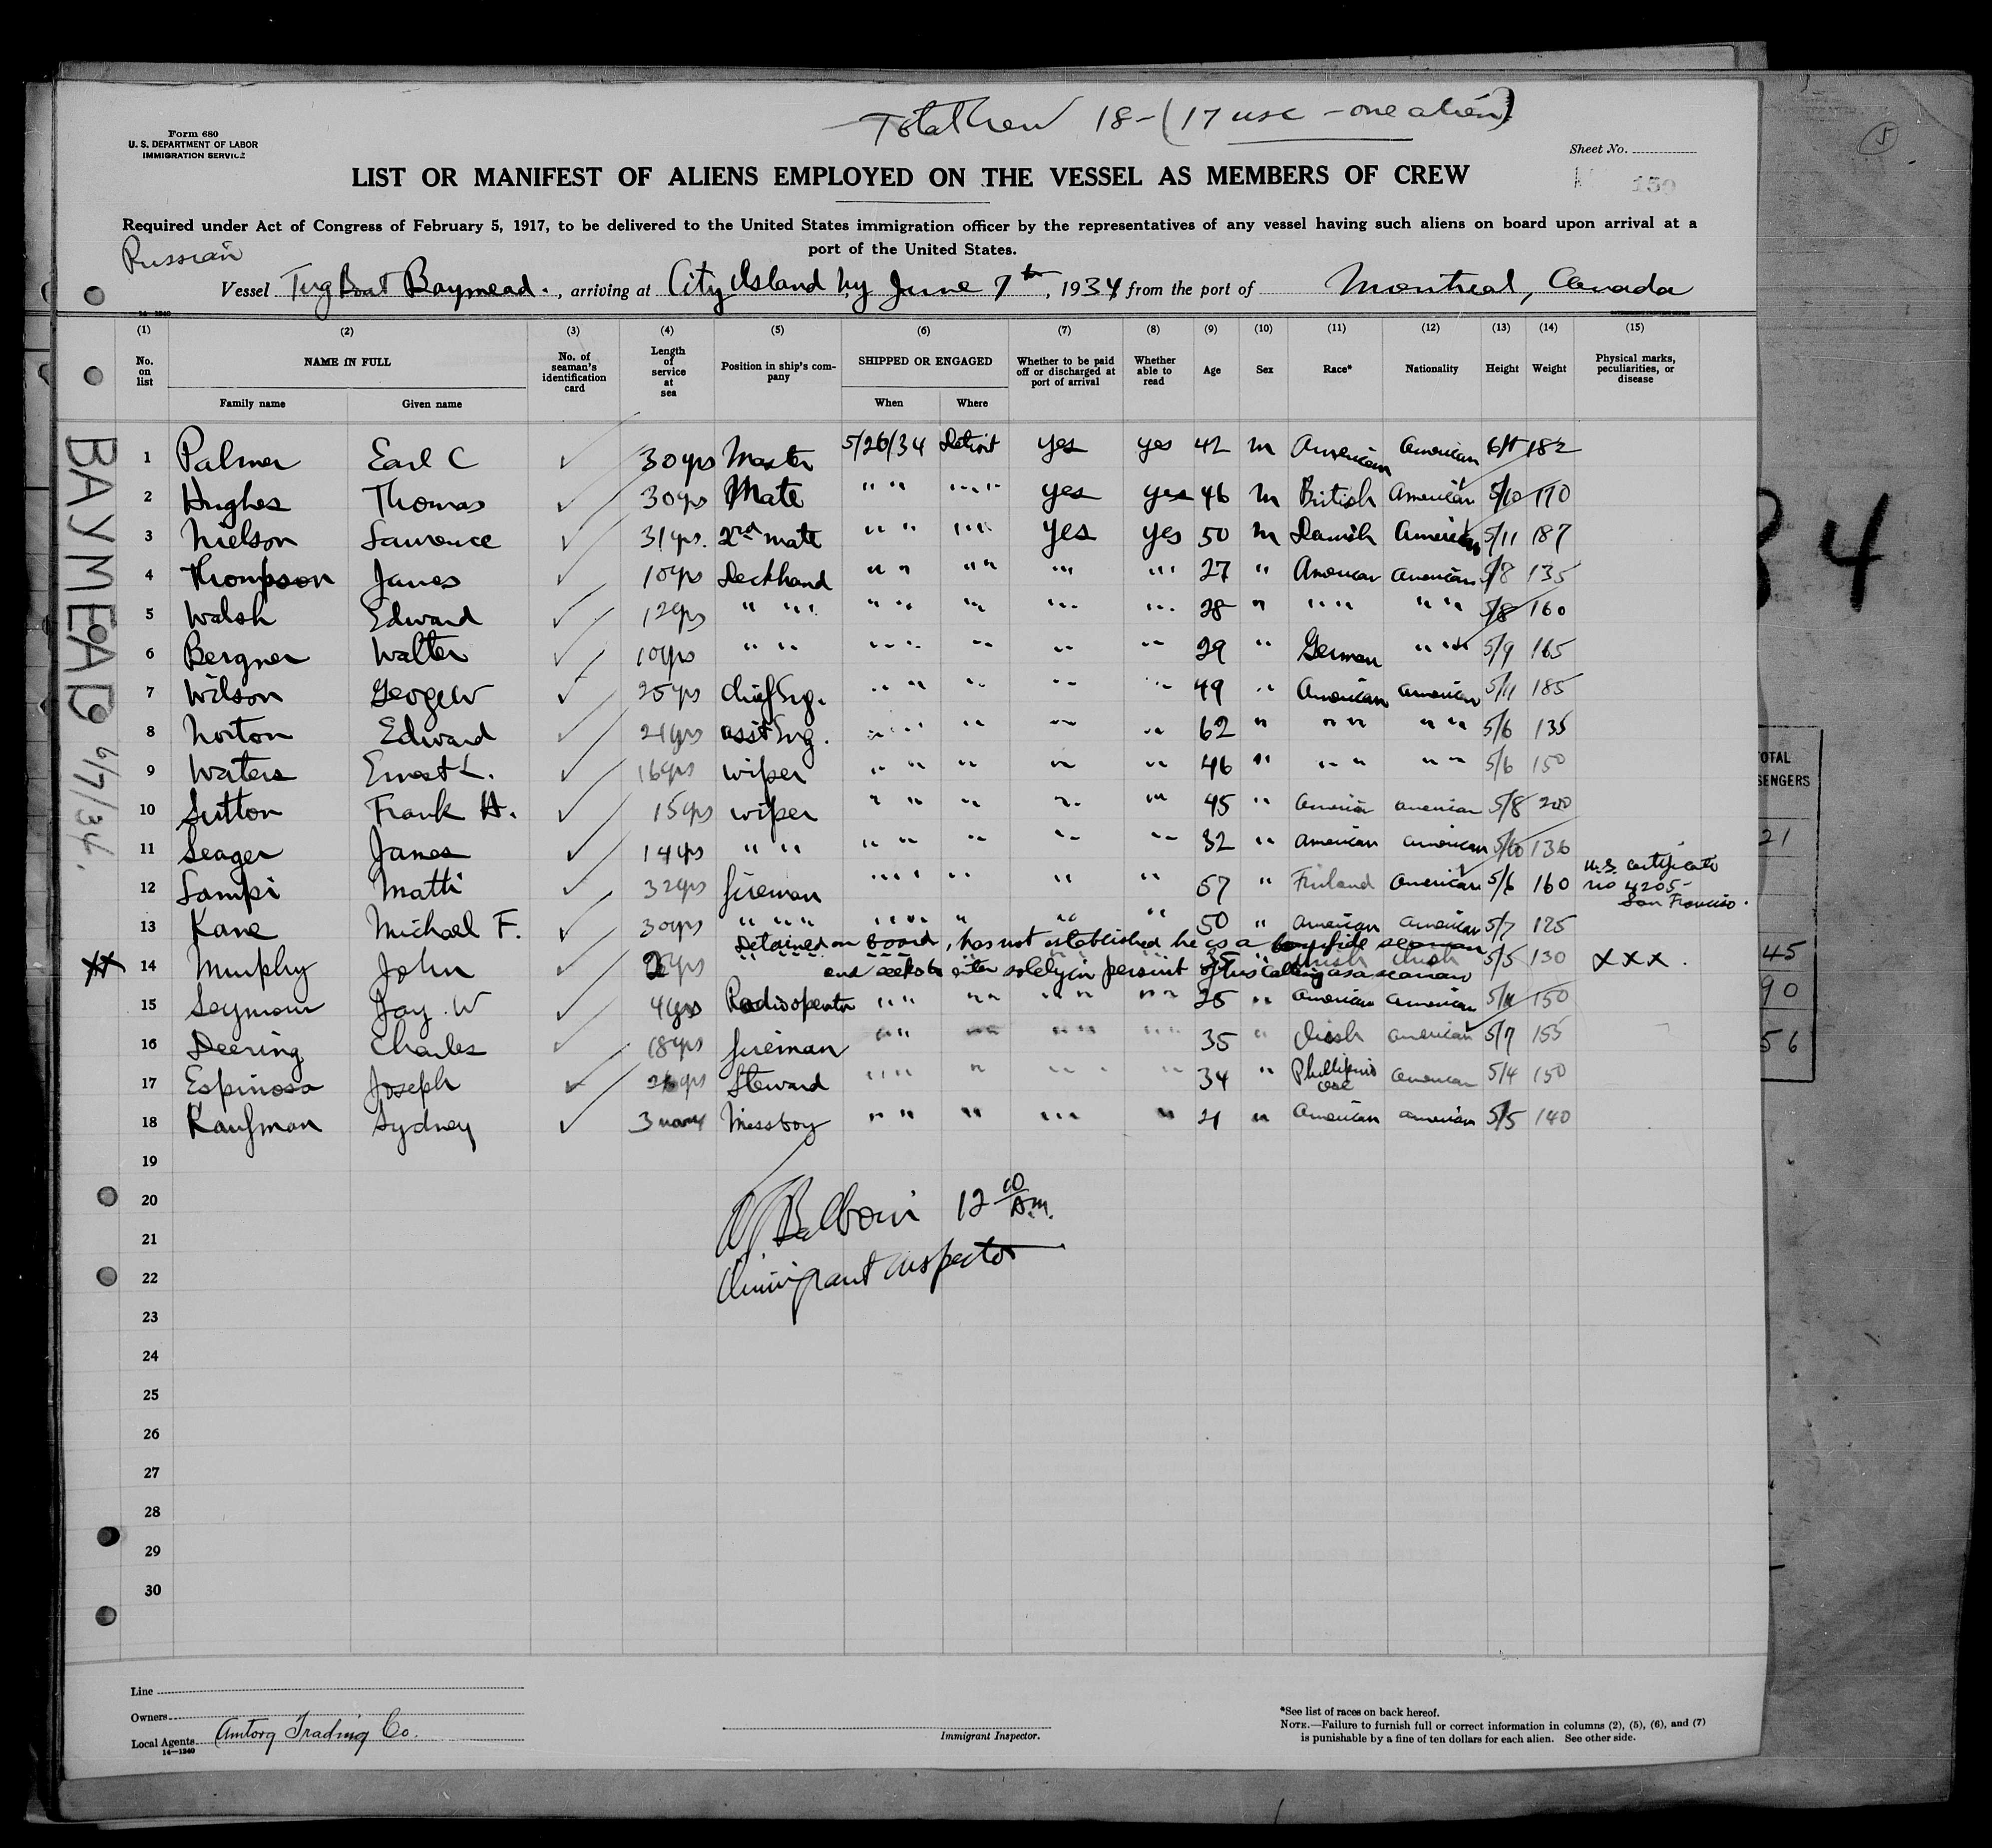 Total Crew 18-(17 usc - one alien)
5
Form 680
U. S. DEPARTMENT OF LABOR
IMMIGRATION SERVICE
Sheet No.
150
LIST OR MANIFEST OF ALIENS EMPLOYED ON THE VESSEL AS MEMBERS OF CREW
Required under Act of Congress of February 5, 1917, to be delivered to the United States immigration officer by the representatives of any vessel having such aliens on board upon arrival at a
port of the United States.
Russian
Vessel Tug Boat Baymead., arriving at City Island Ny June 7th, 1934 from the port of Montreal, Canada
14—1240
(1) (2) (3) (4) (5) (6) (7) (8) (9) (10) (11) (12) (13) (14) (15)
No. on list NAME IN FULL No. of seaman's identification card Length of service at sea Position in ship's company SHIPPED OR ENGAGED Whether to be paid off or discharged at port of arrival Whether able to read Age Sex Race* Nationality Height Weight Physical marks, peculiarities, or disease
Family name Given name When Where
BAYMEAD 6/7/34.
1 Palmer Earl C ✓ 30yrs Master 5/26/34 Detroit yes yes 42 m American American 6ft 182
2 Hughes Thomas ✓ 30yrs Mate " " " " yes yes 46 m British American 5/10 170
3 Nielson Laurence ✓ 31yrs. 2nd mate " " " " yes yes 50 m Danish American 5/11 187
4 Thompson James ✓ 10yrs Deckhand " " " " " " 27 " American American 5/8 135
5 Walsh Edward ✓ 12yrs " " " " " " " 28 " " " " " 5/8 160
6 Bergner Walter ✓ 10yrs " " " " " " " 29 " German " " 5/9 165
7 Wilson George W ✓ 25yrs Chief Eng. " " " " " 49 " American American 5/11 185
8 Norton Edward ✓ 21yrs asst Eng. " " " " " 62 " " " " " 5/6 135
9 Waters Ernest L. ✓ 16yrs wiper " " " " " 46 " " " " " 5/6 150
10 Sutton Frank H. ✓ 15yrs wiper " " " " " 45 " American American 5/8 200
11 Seager James ✓ 14yrs " " " " " " " 32 " American American 5/10 136
12 Lampi Matti ✓ 32yrs fireman " " " " " 57 " Finland American 5/6 160 U.S. Certificate
no 4205-
San Francisco.
13 Kane Michael F. ✓ 30yrs " " " " " " " 50 " American American 5/7 125
Detained on board, has not established he is a bonafide seaman
14 Murphy John ✓ yrs 35 " Irish Irish 5/5 130 XXX.
and seeks to enter solely in persuit of his calling as a seaman
15 Seymour Jay W ✓ 4yrs Radio operator " " " " " 25 " American American 5/11 150
16 Deering Charles ✓ 18yrs fireman " " " " " 35 " Irish American 5/7 155
17 Espinosa Joseph ✓ yrs Steward " " " " " 34 " Phillipino American 5/4 150
18 Kaufman Sydney ✓ 3 Messboy " " " " " 21 " American American 5/5 140
19
20
21
22
23
24
25
26
27
28
29
30
12 00 A.m.
Immigrant inspector
Line
Owners
Local Agents Amtorg Trading Co.
14—1240
Immigrant Inspector.
*See list of races on back hereof.
NOTE.—Failure to furnish full or correct information in columns (2), (5), (6), and (7)
is punishable by a fine of ten dollars for each alien. See other side.
4
OTAL
SENGERS
21
45
90
56